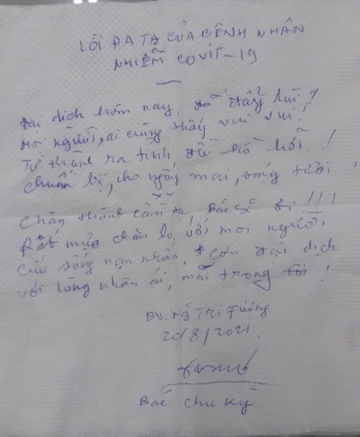 LỜI ĐA TẠ CỦA BỆNH NHÂN
NHIỄM COVIT-19
Đại dịch hôm nay, đẩy lùi!
Mọi người, ai cũng thấy vui vui!
Từ thành ra tỉnh, đều hồ hởi!
Chuẩn bị, cho ngày mai, sáng tươi!
Chân thành cảm tạ, Bác sĩ ơi!!!
Rất mực chăm lo, với mọi người!
Cứu sống nạn nhân, cơn đại dịch
Với lòng nhân ái, mãi trong tôi!
BV. Ng Tri Phương
20/8/2021.
Bái Chu Kỳ